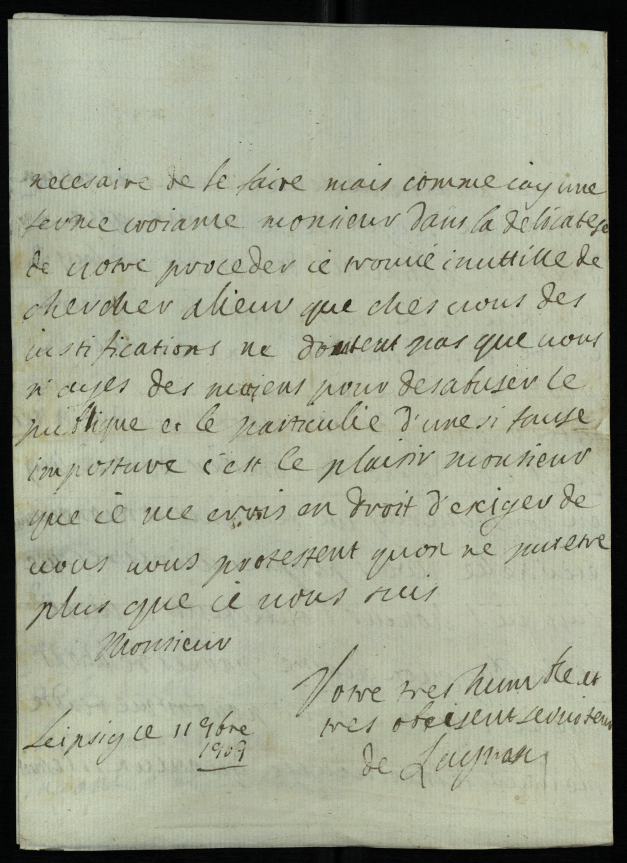 necesaire de le faire mais comme iay une
ferme croiance monsieur dans la delicatese
de votre proceder ie trouve inuttille de
chercher alieur que ches vous des
iustifications ne doutent pas que vous
n'ayes des moiens pour desabuser le
publique et le particulié d'une si fause
imposture c'est le plaisir monsieur
que ie me crois en droit d'exiger de
vous vous protestent quon ne put etre
plus que ie vous suis
Monsieur
Votre tres humble et
tres obeisent serviteur
Leipsig ce 11 9bre
1909
de